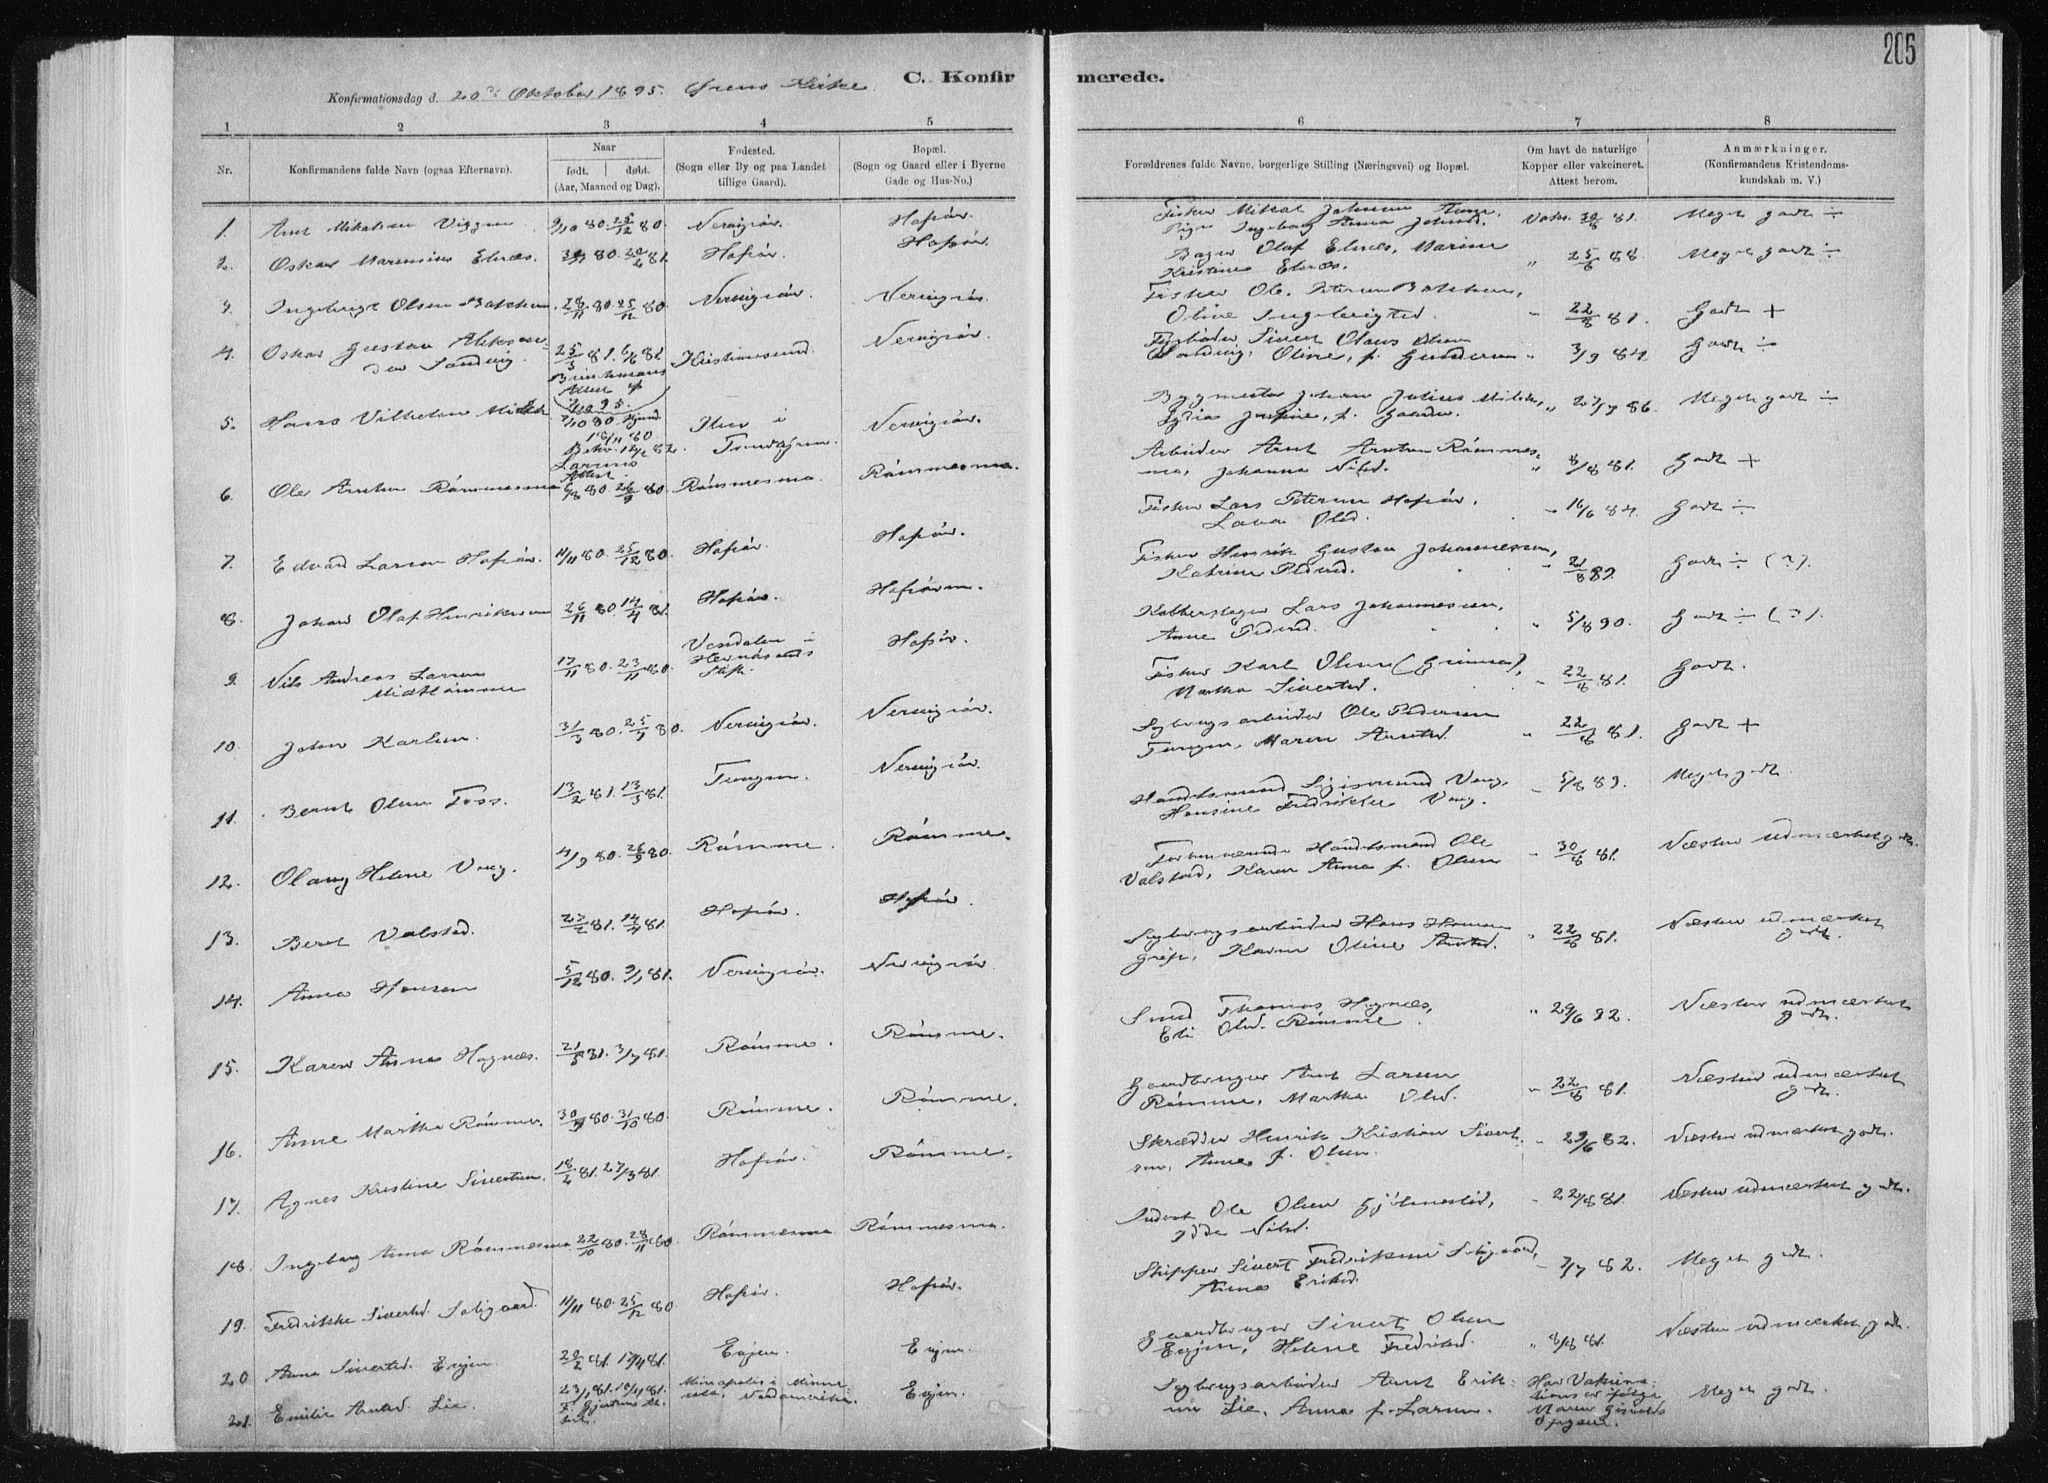 205
C. Konfir merede.
Konfirmationsdag d. 20de Oktober 1895. Ørens Kirke
1 2 3 4 5 6 7 8
Nr.
Konfirmandens fulde Navn (ogsaa Efternavn).
Naar
født. døbt.
(Aar, Maaned og Dag).
Fødested.
(Sogn eller By og paa Landet
tillige Gaard).
Bopæl.
(Sogn og Gaard eller i Byerne
Gade og Hus-No.)
Forældrenes fulde Navne, borgerlige Stilling (Næringsvei) og Bopæl.
Om havt de naturlige
Kopper eller vakcineret.
Attest herom.
Anmærkninger.
(Konfirmandens Kristendoms-
kundskab m. V.)
1. Arnt Mikalsen Viggen 9/10 80. 25/12 80 Nervigiør. Hofsør. Fisker Mikal Johnsen
Pige Ingeborg Anna Johnsd. Vaks. 30/8 81. Meget godt ÷
2. Oskar Marensius Elnæs. 80. 81. Hofsør. Hofsør. Bager Olaf Elnæs, Marine
Kristine Elnæs. " 25/6 88. Meget godt ÷
3. Ingebrigt Olsen Bakken. 28/11 80. 25/12 80 Nervigiør. Nervigiør. Fisker Ole Petersen Bakken,
Oline Ingebrigtsd. " 22/8 81. Godt +
4. Oskar Gustav Aleksan-
der Sandvig. 25/3 81. 6/6 81 Kristiansund. Nervigiør. Sivert Olaus
Sandvig, Oline, f. Gundersen " 3/9 84. Godt ÷
5. Hans Vilhelm Milch 7/10 80 Hjemd.
18/11 80
Bekr. 12/2 82. Ilen i
Trondhjem. Nervigiør. Bygmester Johan Julius Milch,
Lydia Josefine, f. " 27/7 86. Meget godt ÷
6. Ole Arntsen Rømmesmo 6/8 80. 26/9 80. Rømmesmo. Rømmesmo. Arbeider Arnt Arntsen Rømmes-
mo, Johanna Nilsd. " 8/8 81. Godt +
7. Edvard Larsen Hofsør. 11/11 80. 25/12 80. Hofsør. Hofsør. Fisker Lars Petersen Hofsør,
Lava Olsd. " 16/6 84. Godt ÷
8. Johan Olaf Henriksen 26/11 80. 14/4 81. Hofsør. Hofsøren. Fisker Henrik Gustav Johannessen,
Katrine Pedersd. " 21/8 89. Godt ÷ (?).
9. Nils Andreas Larsen
Midthømme 17/11 80. 23/11 80. Vendalen i
Hernøsands
Stift. Hofsør. Kobberslager Lars Johannesen,
Anne Pedersd. " 5/8 90. Godt ÷ (?).
10. Johan Karlsen. 31/3 80. 25/7 80. Nervigiør. Nervigiør. Fisker Karl Olsen (Grimna),
Martha Sivertsd. " 22/8 81. Godt.
11. Bernt Olsen Foss. 13/2 81. 13/3 81. Tungen. Nervigiør. Sagbrugsarbeider Ole Pedersen
Tungen, Maren Arntsd. " 22/8 81. Godt +
12. Olaug Helene Vaag. 4/9 80. 26/9 80. Rømme. Rømme. Handelsmand Sigismund Vaag,
Hansine Fredrikke Vaag. " 5/8 83. Meget godt.
13. Beret Valstad. 27/2 81. 14/4 81. Hofsør. Hofsør. Forhenværende Handelsmand Ole
Valstad, Karen Anna f. Olsen " 30/8 81. Næsten udmærket godt.
14. Anna Hansen 5/12 80. 9/1 81. Nervigiør. Nervigiør Sagbrugsarbeider Hans Hansen
Grøft, Karen Oline Arntsd. " 22/8 81. Næsten udmærket
godt.
15. Karen Anna Hognæs. 21/5 81. 3/7 81. Rømme. Rømme. Smed Thomas Hognæs,
Eli Olsd. Rømme. " 29/6 82. Næsten udmærket
godt.
16. Anne Martha Rømme. 30/9 80. 31/10 80. Rømme. Rømme. Gaardbruger Arnt Larsen
Rømme, Martha Olsd. " 22/8 81. Næsten udmærket
godt.
17. Agnes Kristine Sivertsen. 18/2 81. 27/3 81. Hofsør. Rømme. Skrædder Henrik Kristian Sivert-
sen, Anne f. Olsen. " 29/6 82. Næsten udmærket godt.
18. Ingeborg Anna Rømmesmo 22/10 80. 28/11 80. Rømmesmo Rømmesmo. Inderst Ole Olsen Gjølmeslid,
Nilsd. " 22/8 81. Næsten udmærket godt.
19. Fredrikke Sivertsd. Soligaard 11/11 80. 25/12 80. Hofsør. Hofsør. Skipper Sivert Fredriksen Soligaard,
Anna Eriksd. " 7/7 82. Meget godt.
20 Anna Sivertsd. Evjen. 20/2 81. 17/4 81. Evjen. Evjen. Gaardbruger Sivert Olsen
Evjen, Helene Fredriksd. " 8/8 81. Næsten udmærket godt.
21. Emilie Arntsd. Lie. 23/1 81. Minapolis i Minne-
sota, Nordamerika. Evjen. Sagbrugsarbeider Arnt Erik-
sen Lie, Anna f. Larsen. Har Vaksina-
tionsar ifølge
Maren
Meget godt.